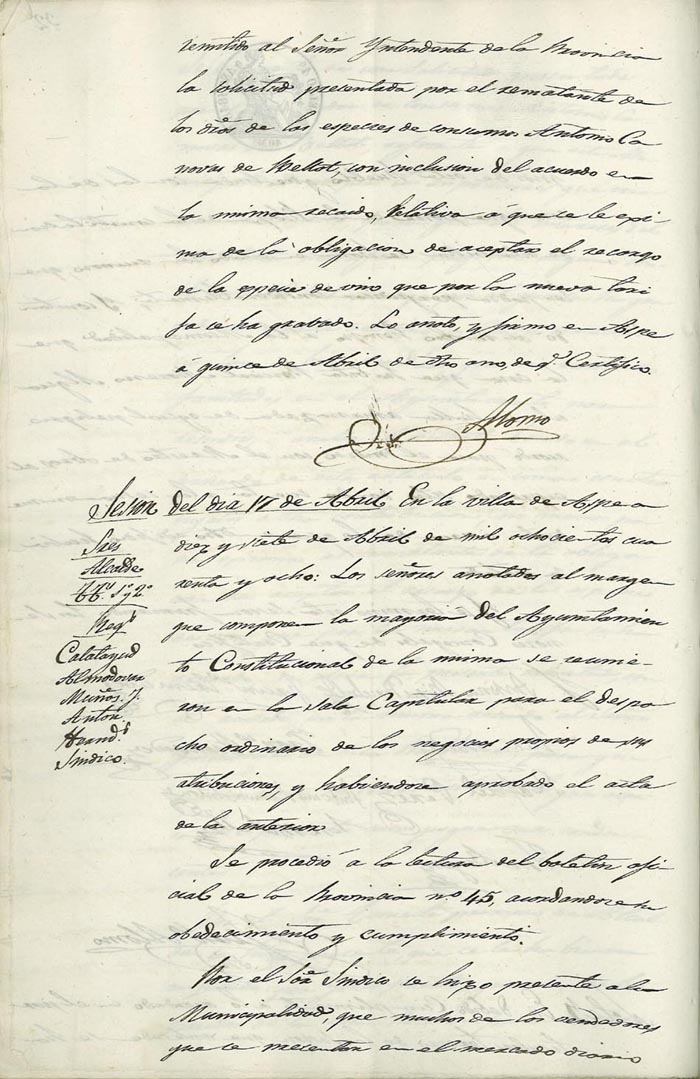 remitido al Señor Yntendente de la Provincia
la solicitud presentada por el rematante de
los dros de las especies de consumos Antonio Ca
novas de Beltot, con inclusion del acuerdo en
la misma recaido, relativa á que se le exi
ma de la obligacion de aceptar el recargo
de la especie de vino que por la nueva tari
fa se ha gravado. Lo anoto, y firmo en Aspe
á quince de Abril de dho ano, de q.e Certifico.
Alomo
Sesion del dia 17 de Abril En la villa de Aspe a
diez y siete de Abril de mil ochocientos cua
renta y ocho: Los señores anotados al margen
que componen la mayoria del Ayuntamien
to Constitucional de la misma se reunie-
ron en la sala Capitular para el despa
cho ordinario de los negocios propios de sus
atribuciones, y habiendose aprobado el acta
de la anterior
Sres
Alcalde
TT.s 1.º y 2.º
Reg.s
Catalayud
Almodovar
Muños. J.
Anton
Hernd.s
Sindico.
Se procedió a la lectura del boletin ofi
cial de la Provincia n.º 45, acordandose su
obedecimiento y cumplimiento.
Por el Sõr Sindico se hizo presente a la
Municipalidad, que muchos de los vendedores
que se presentan en el mercado diario